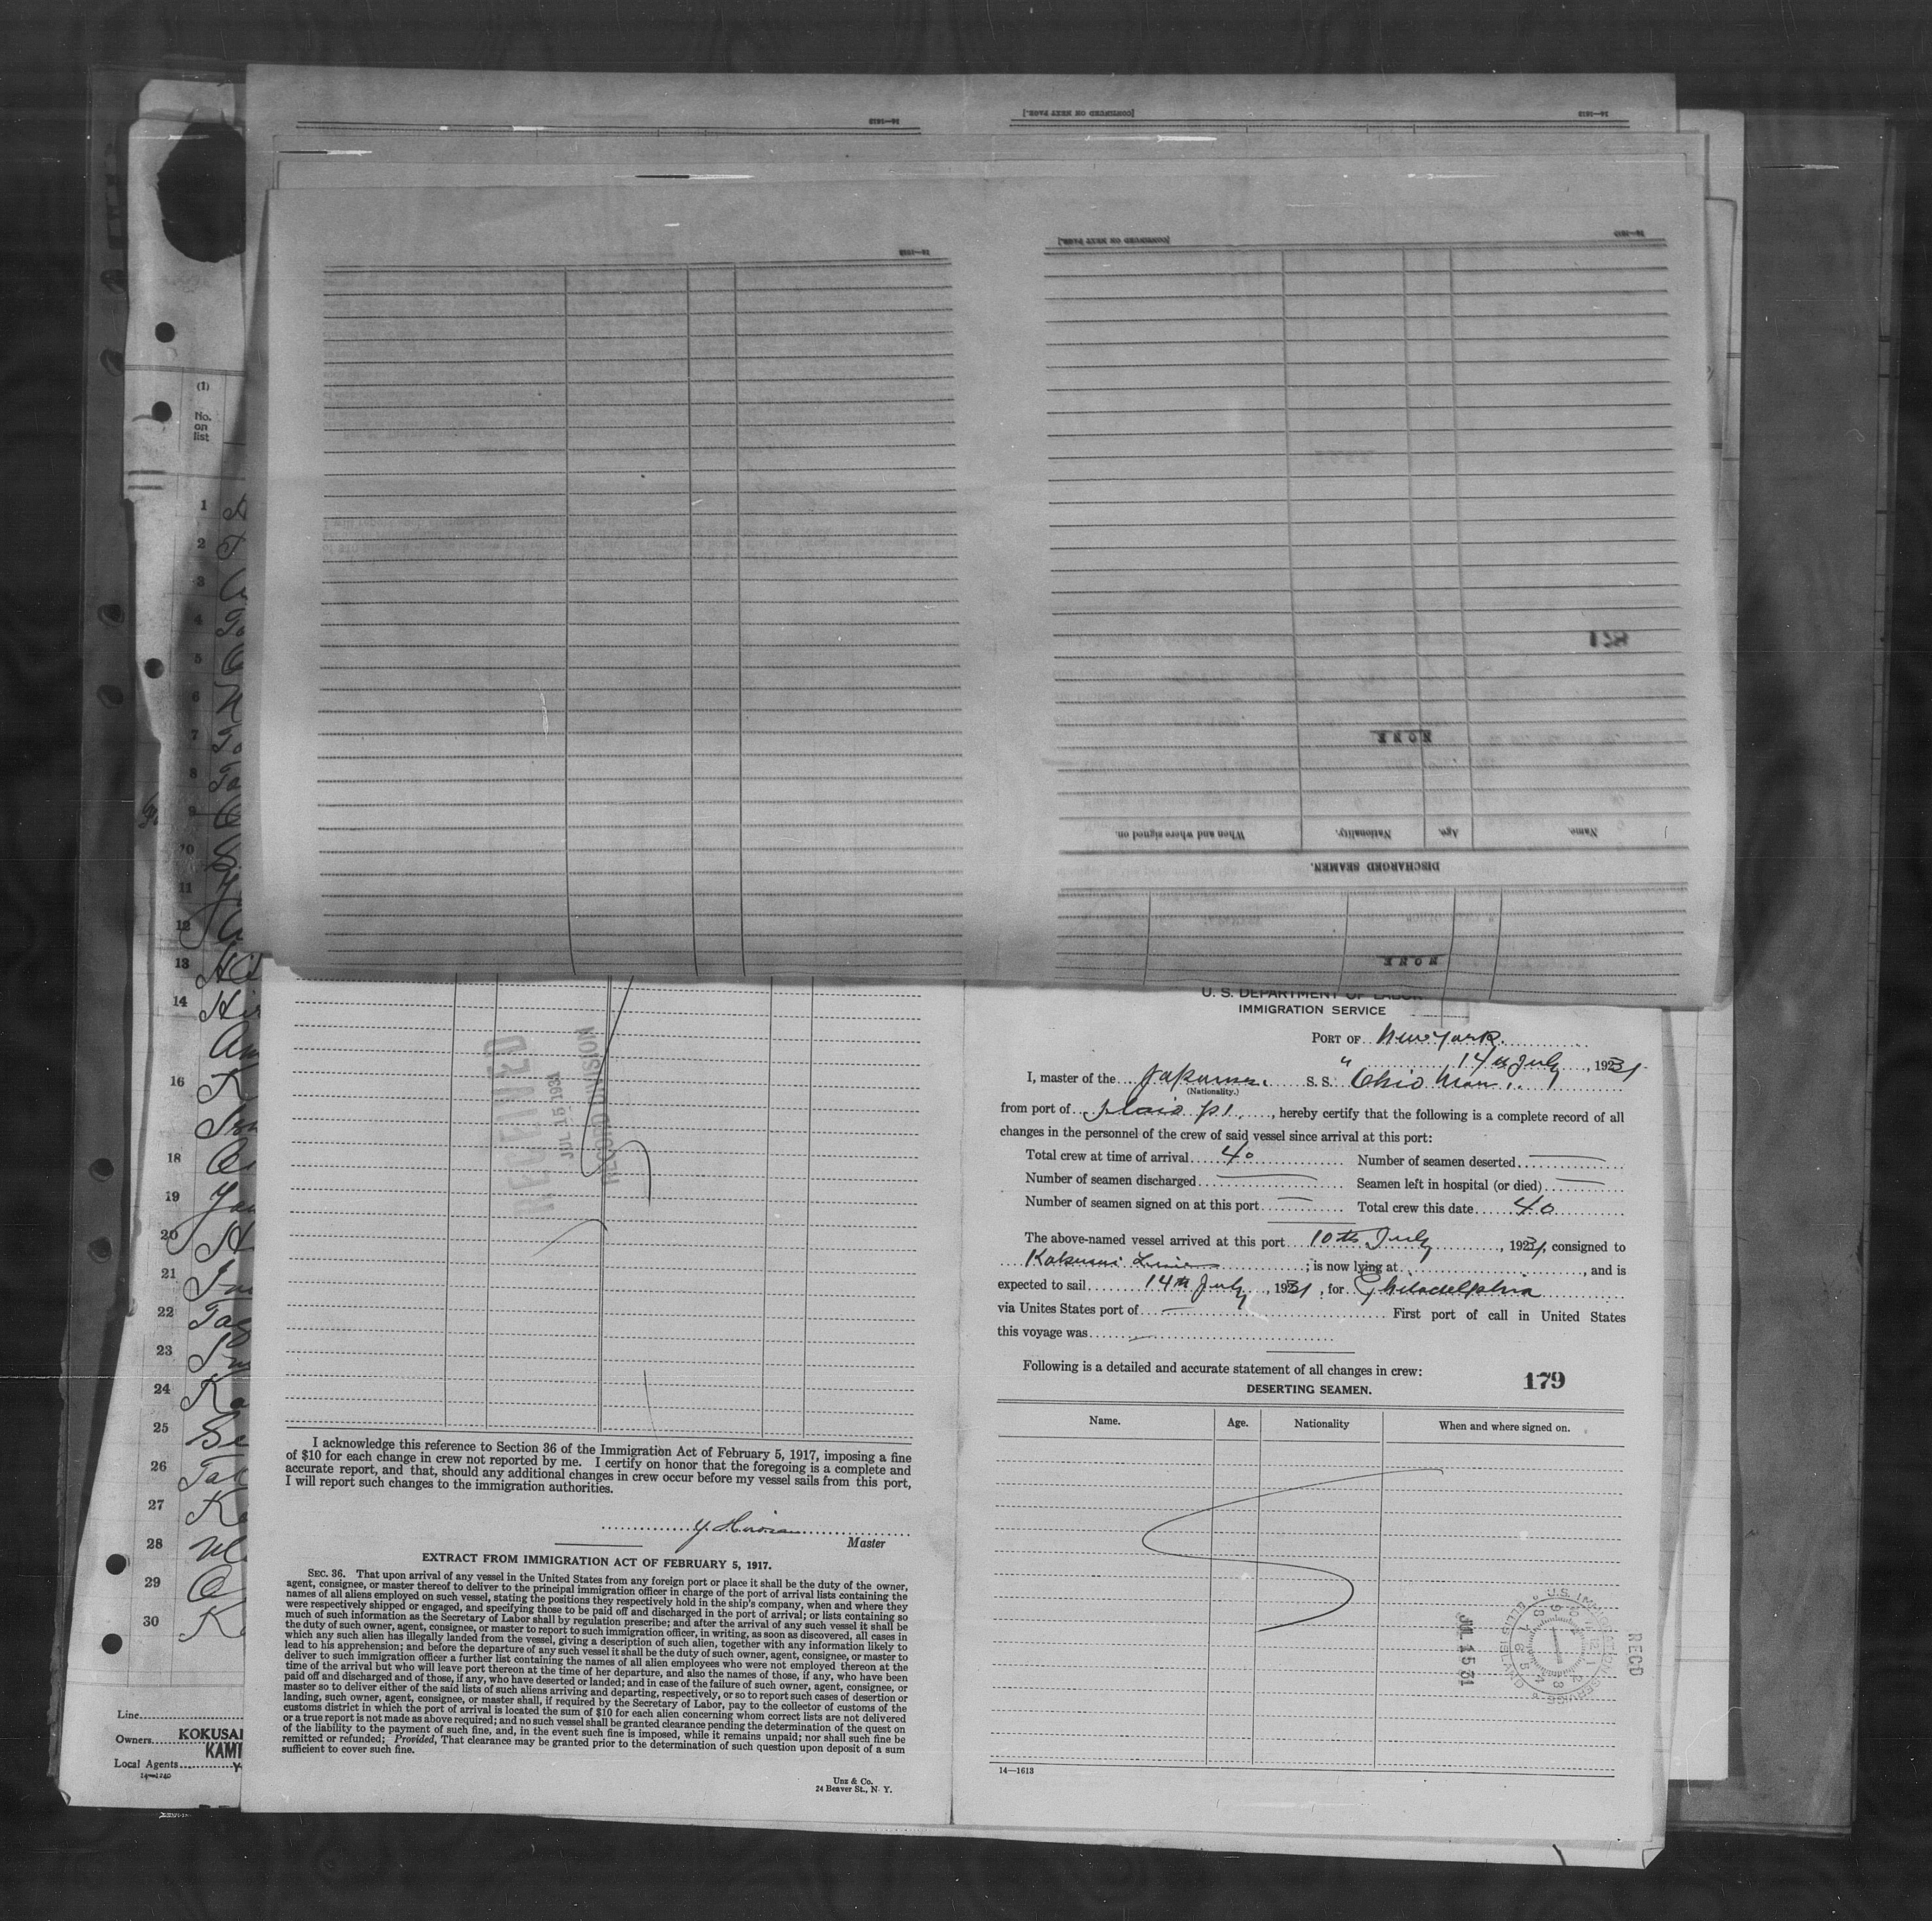 14—1613
[CONTINUED ON NEXT PAGE.]
14—1613
14—1613
[CONTINUED ON NEXT PAGE.]
14—1613
178
NONE
Name.
Age.
Nationality.
When and where signed on.
DISCHARGED SEAMEN.
NONE
(1)
No.
on
list
1
2
3
4
5
6
7
8
9
10
11
12
13
14
16
18
19
20
21
22
23
24
25
26
27
28
29
30
Line
Owners KOKUSAI
KAMI
Local Agents
14—1240
RECEIVED
JUL 15 1931
RECORD DIVISION
I acknowledge this reference to Section 36 of the Immigration Act of February 5, 1917, imposing a fine
of $10 for each change in crew not reported by me. I certify on honor that the foregoing is a complete and
accurate report, and that, should any additional changes in crew occur before my vessel sails from this port,
I will report such changes to the immigration authorities.
Master
EXTRACT FROM IMMIGRATION ACT OF FEBRUARY 5, 1917.
SEC. 36. That upon arrival of any vessel in the United States from any foreign port or place it shall be the duty of the owner,
agent, consignee, or master thereof to deliver to the principal immigration officer in charge of the port of arrival lists containing the
names of all aliens employed on such vessel, stating the positions they respectively hold in the ship's company, when and where they
were respectively shipped or engaged, and specifying those to be paid off and discharged in the port of arrival; or lists containing so
much of such information as the Secretary of Labor shall by regulation prescribe; and after the arrival of any such vessel it shall be
the duty of such owner, agent, consignee, or master to report to such immigration officer, in writing, as soon as discovered, all cases in
which any such alien has illegally landed from the vessel, giving a description of such alien, together with any information likely to
lead to his apprehension; and before the departure of any such vessel it shall be the duty of such owner, agent, consignee, or master to
deliver to such immigration officer a further list containing the names of all alien employees who were not employed thereon at the
time of the arrival but who will leave port thereon at the time of her departure, and also the names of those, if any, who have been
paid off and discharged and of those, if any, who have deserted or landed; and in case of the failure of such owner, agent, consignee, or
master so to deliver either of the said lists of such aliens arriving and departing, respectively, or so to report such cases of desertion or
landing, such owner, agent, consignee, or master shall, if required by the Secretary of Labor, pay to the collector of customs of the
customs district in which the port of arrival is located the sum of $10 for each alien concerning whom correct lists are not delivered
or a true report is not made as above required; and no such vessel shall be granted clearance pending the determination of the quest on
of the liability to the payment of such fine, and, in the event such fine is imposed, while it remains unpaid; nor shall such fine be
remitted or refunded; Provided, That clearance may be granted prior to the determination of such question upon deposit of a sum
sufficient to cover such fine.
Unz & Co.
24 Beaver St., N. Y.
U. S. DEPARTMENT OF LABOR
IMMIGRATION SERVICE
PORT OF New York
14th July, 1931
I, master of the Japanese S. S. "Ohio Maru"
(Nationality.)
from port of, hereby certify that the following is a complete record of all
changes in the personnel of the crew of said vessel since arrival at this port:
Total crew at time of arrival 40 Number of seamen deserted
Number of seamen discharged Seamen left in hospital (or died)
Number of seamen signed on at this port Total crew this date 40
The above-named vessel arrived at this port 10th July, 1931, consigned to
; is now lying at, and is
expected to sail 14th July, 1931, for Philadelphia
via Unites States port of — First port of call in United States
this voyage was
Following is a detailed and accurate statement of all changes in crew:
179
DESERTING SEAMEN.
Name. Age. Nationality When and where signed on.
RECD
JUL 15 31
U.S. IMMIGRATION SERVICE
ELLIS ISLAND
14—1613